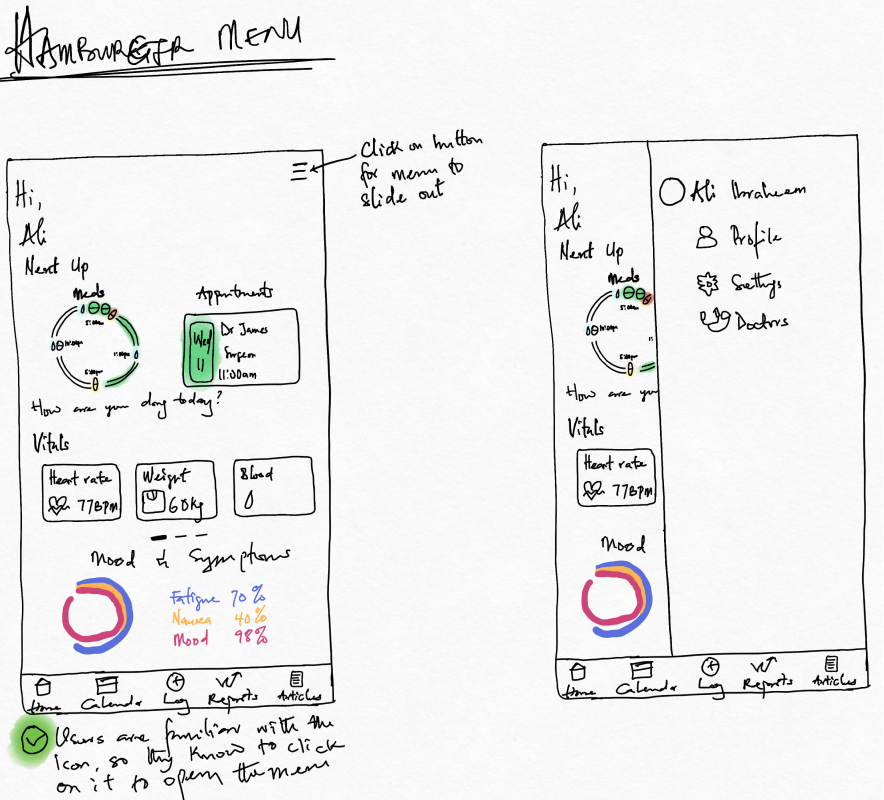 HAMBURGER MENU
Click on button
for menu to
slide out
Hi,
Ali
Next Up
Meds
Appointments
Wed
11
Dr James
Surgeon
11:00am
How are you doing today?
Vitals
Heart rate
77BPM
Weight
60kg
Blood
Mood & Symptoms
Fatigue 70%
Nausea 40%
Mood 98%
Home
Calendar
Log
Reports
Articles
Users are familiar with the
icon, so they know to click
on it to open the menu
Hi,
Ali
Next Up
Meds
How are you
Vitals
Heart rate
77BPM
Mood
Ali Ibraheem
Profile
Settings
Doctors
Home
Calendar
Log
Reports
Articles